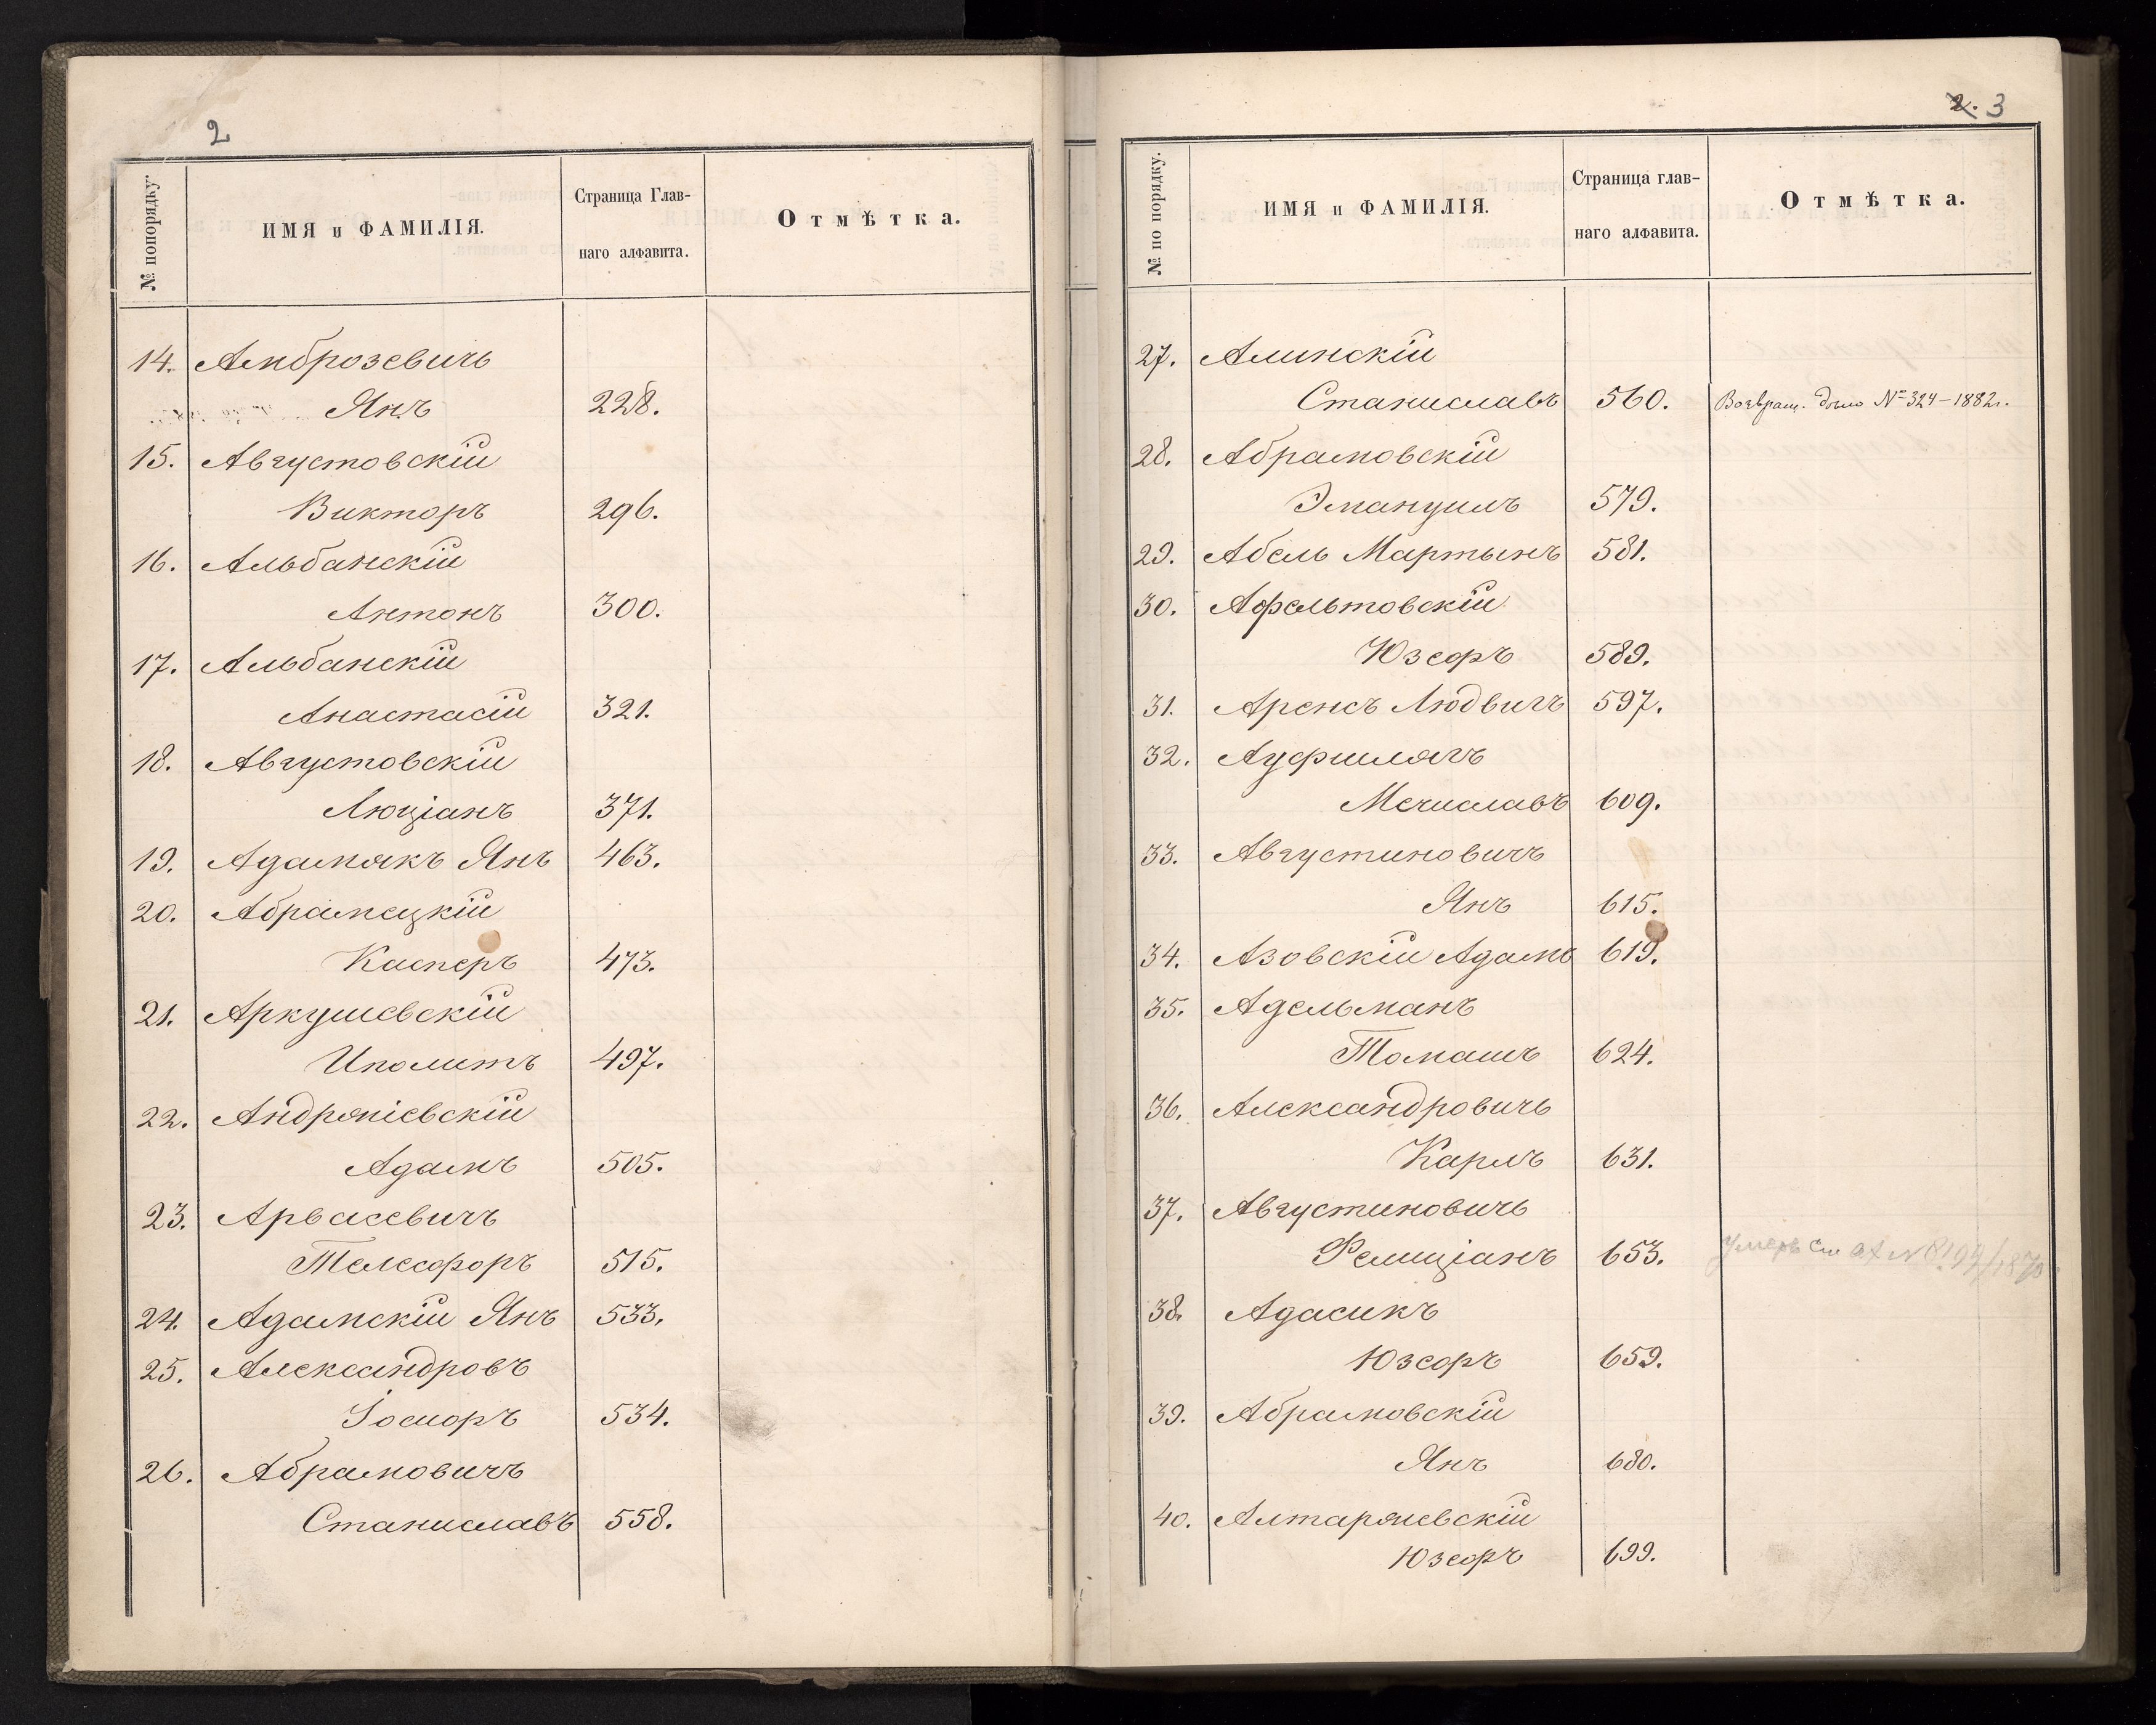 2
№ попорядку.
ИМЯ и ФАМИЛІЯ.
Страница Глав-
наго алфавита.
Отмѣтка.
14. Амброзевичь
Янъ 228.
15. Августовскій
Викторъ 296.
16. Альбанскій
Антонъ 300.
17. Альбанскій
Анастасій 321.
18. Августовскій
Люціанъ 371.
19. Адамякъ Янъ 463.
20. Абрамецкій
Касперъ 473.
21. Аркушевскій
Иполитъ 497.
22. Андрапіевскій
Адамъ 505.
23. Арвасевичъ
Телесфоръ 515.
24. Адамскій Янъ 533.
25. Александровъ
534.
26. Абрамовичъ
Станиславъ 558.
2. 3
№ по порядку.
ИМЯ и ФАМИЛІЯ.
Страница глав-
наго алфавита.
Отмѣтка.
27. Алинскій
Станиславъ 560. Возвращ. дѣло № 324-1882г.
28. Абрамовскій
Эмануилъ 579.
29. Абель Мартынъ 581.
30. Афельтовскій
Юзефъ 589.
31. Аренсъ Людвигъ 597.
32. Ауфшлягъ
Мечиславъ 609.
33. Августиновичъ
Янъ 615.
34. Азовскій Адамъ 619.
35. Адельманъ
Томашъ 624.
36. Александровичь
Карлъ 631.
37. Августиновичь
Фелиціанъ 653. умеръ См
38. Адасикъ
Юзефъ 659.
39. Абрамовскій
Янъ 680.
40. Алтаряневскій
Юзефъ 699.